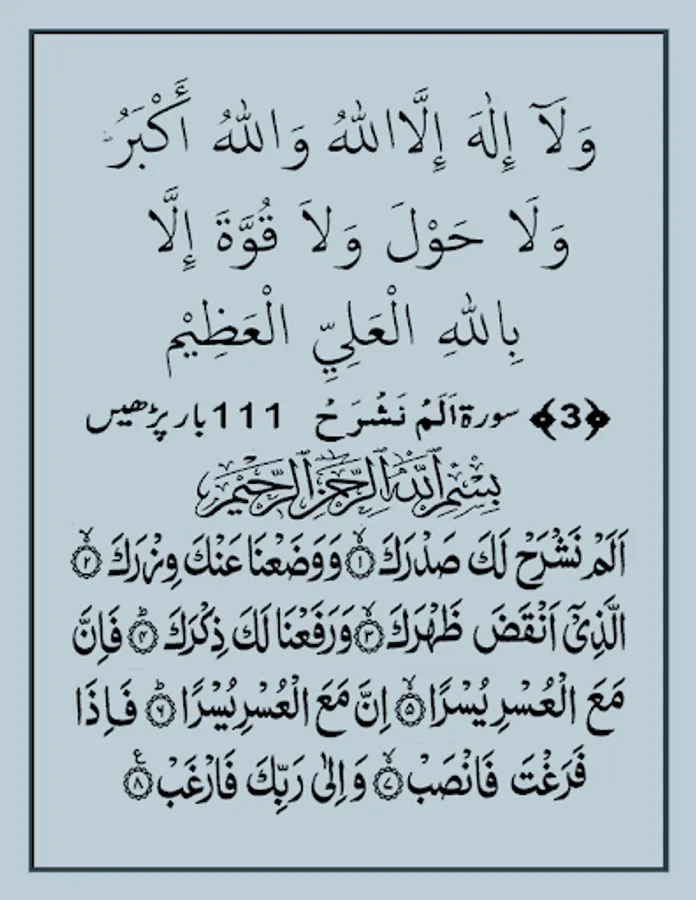 وَلَآ إِلٰهَ إِلَّا اللهُ وَاللهُ أَكْبَرُ
وَلَا حَوْلَ وَلَا قُوَّةَ إِلَّا
بِاللهِ الْعَلِيِّ الْعَظِيْمِ
﴿3﴾ سورة اَلَمْ نَشْرَحْ 111 بار پڑھیں
بِسْمِ ٱللَّٰهِ ٱلرَّحْمَٰنِ ٱلرَّحِيمِ
اَلَمْ نَشْرَحْ لَكَ صَدْرَكَ ۙ﴿۱﴾ وَوَضَعْنَا عَنْكَ وِزْرَكَ ۙ﴿۲﴾
الَّذِيْٓ اَنْقَضَ ظَهْرَكَ ۙ﴿۳﴾ وَرَفَعْنَا لَكَ ذِكْرَكَ ؕ﴿۴﴾ فَاِنَّ
مَعَ الْعُسْرِ يُسْرًا ۙ﴿۵﴾ اِنَّ مَعَ الْعُسْرِ يُسْرًا ؕ﴿۶﴾ فَاِذَا
فَرَغْتَ فَانْصَبْ ۙ﴿۷﴾ وَاِلٰى رَبِّكَ فَارْغَبْ ﴿۸﴾